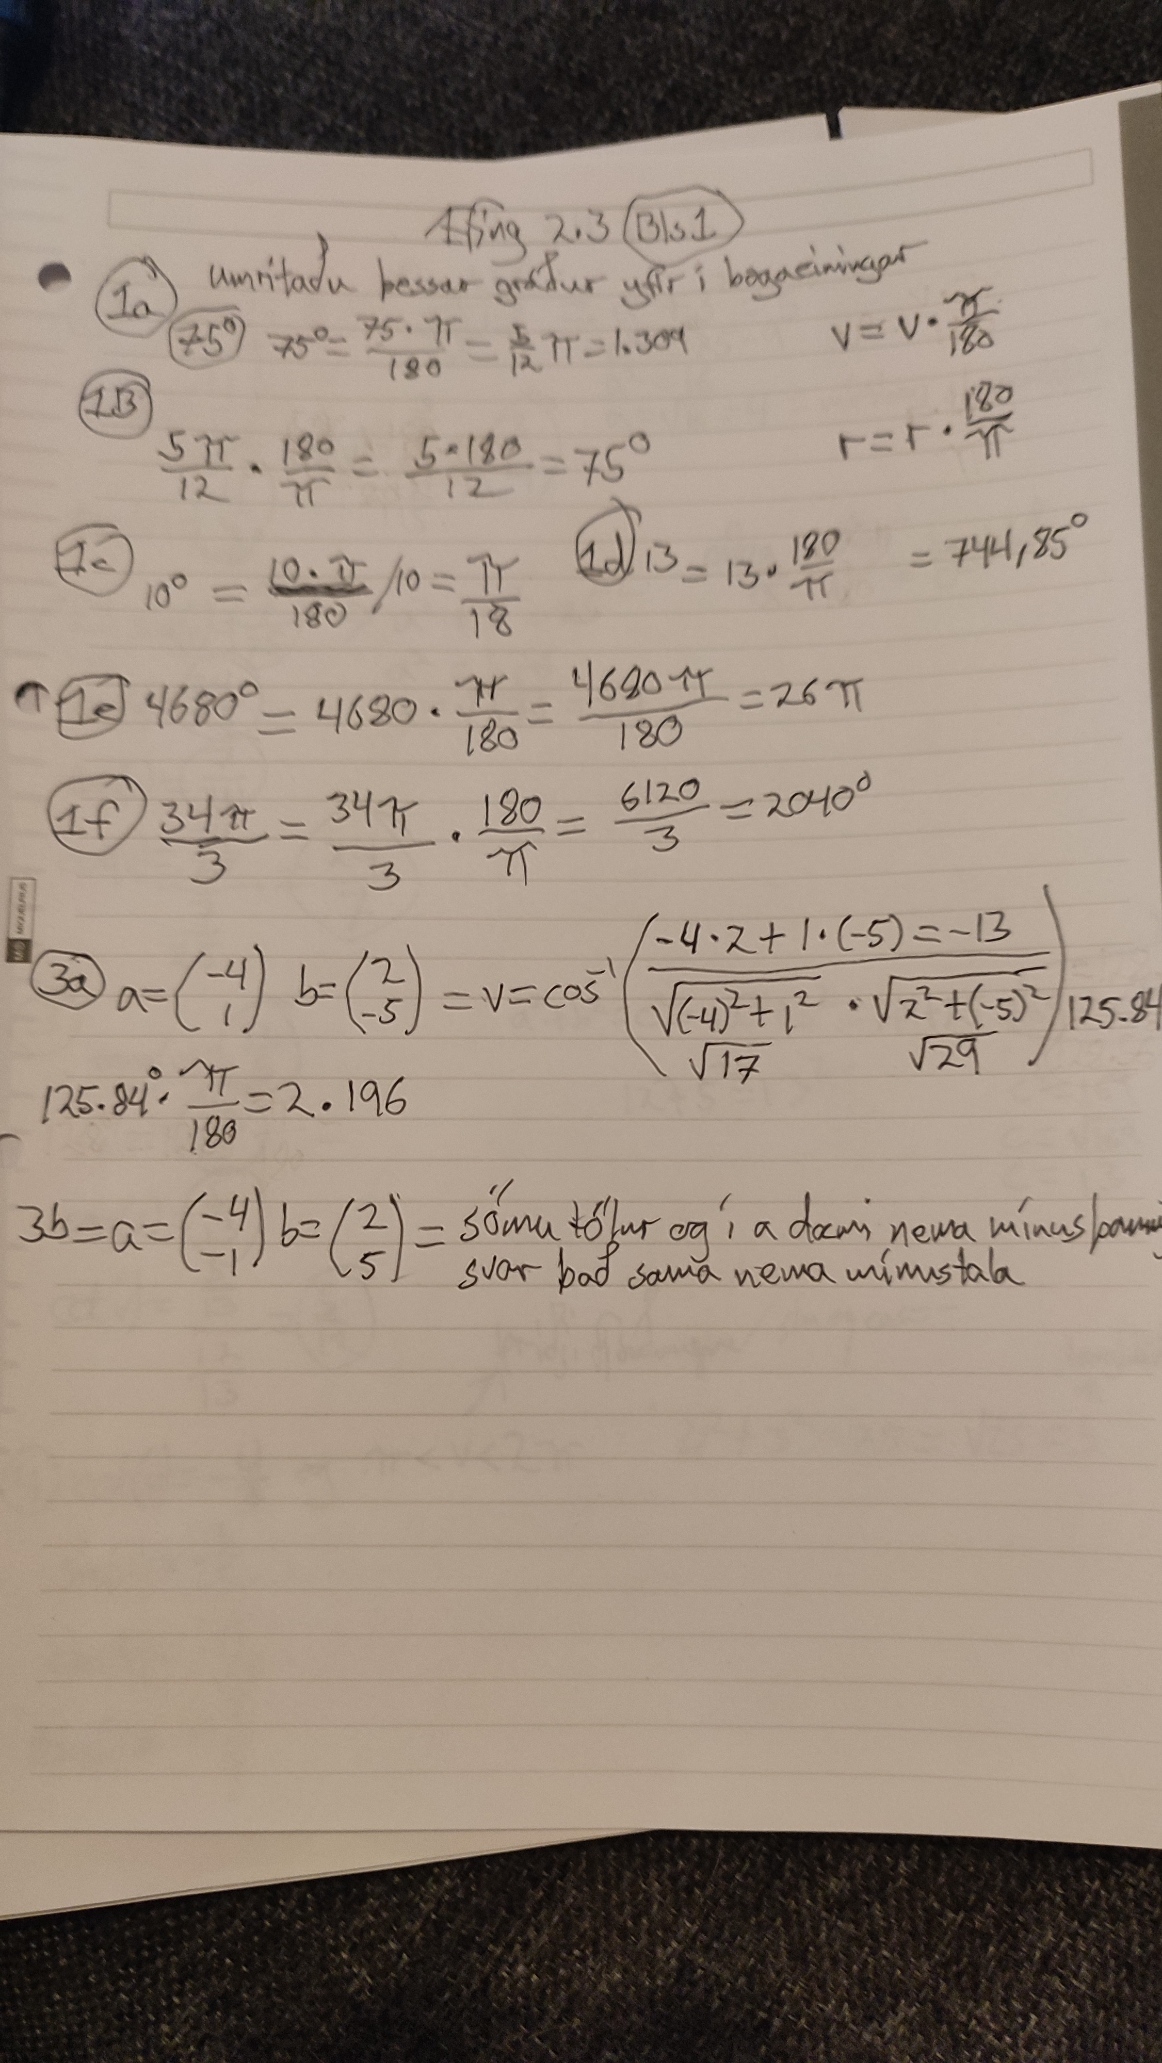 Æfing 2.3 Bls 1
1a umritaðu þessar gráður yfir í bogaeiningar
75° 75° = \frac{75 · π}{180} = \frac{5}{12} π = 1.309
v = v · \frac{π}{180}
1B
\frac{5π}{12} · \frac{180}{π} = \frac{5·180}{12} = 75°
r = r · \frac{180}{π}
1c 10° = \frac{10 · π}{180} /10 = \frac{π}{18}
1d 13 = 13 · \frac{180}{π} = 744,85°
1e 4680° = 4680 · \frac{π}{180} = \frac{4680π}{180} = 26π
1f \frac{34π}{3} = \frac{34π}{3} · \frac{180}{π} = \frac{6120}{3} = 2040°
3a a = (-4 1) b = (2 -5) = v = cos⁻¹ ( \frac{-4·2+1·(-5) = -13}{√((-4)²+1²) · √(2²+(-5)²)} ) 125.84
√17 √29
125.84° · \frac{π}{180} = 2.196
3b = a = (-4 -1) b = (2 5) = sömu tölur og í a dæmi nema mínus
svar það sama nema mínustala